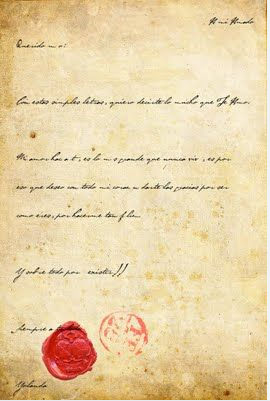 A mi Amado
Querido m o:
Con estas simples letras, quiero decirte lo mucho que Te Amo.
Mi amor hac a t , es lo m s grande que nunca viv , es por
eso que deseo con todo mi coraz n darte las gracias por ser
como eres, por hacerme tan f liz.
Y sobre todo por existir!!
Siempre a tu
Yolanda